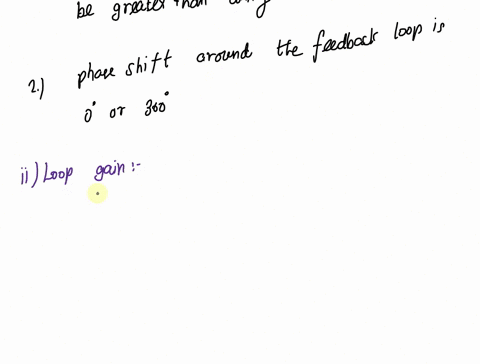 be greater than
2.) phase shift around the feedback loop is
0° or 360°
ii) Loop gain :-